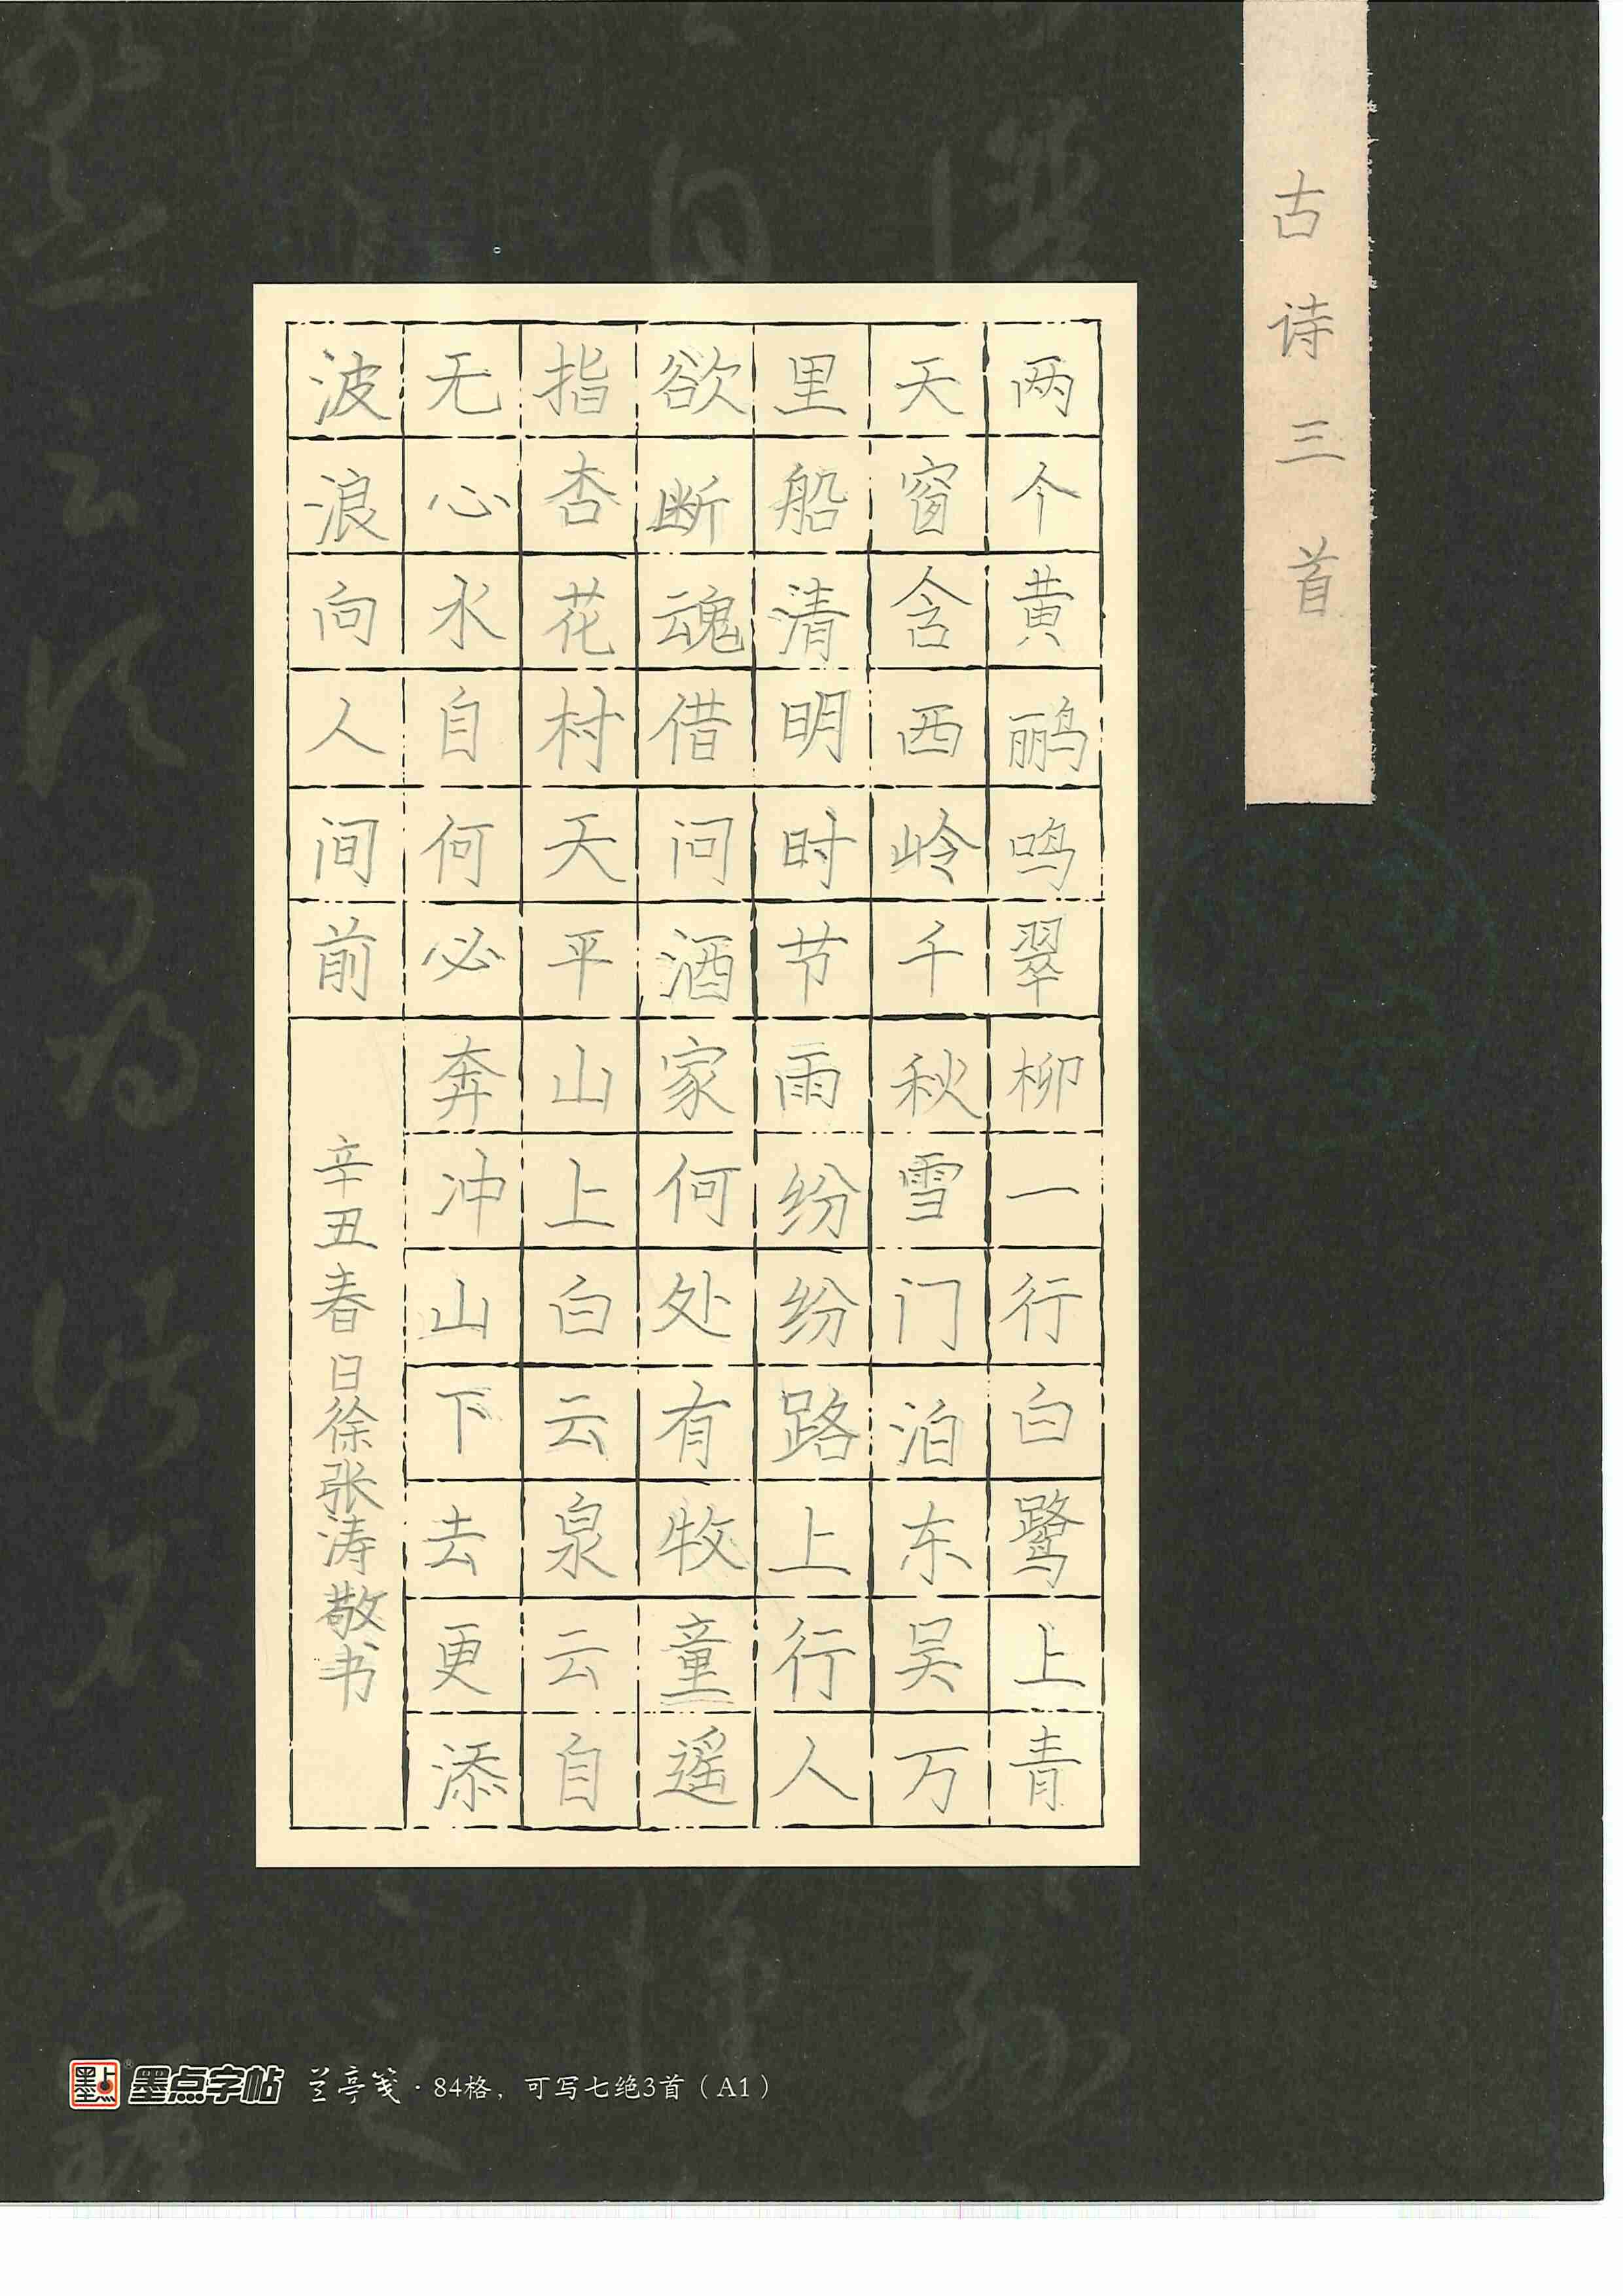 古诗三首
两个黄鹂鸣翠柳一行白鹭上青
天窗含西岭千秋雪门泊东吴万
里船清明时节雨纷纷路上行人
欲断魂借问酒家何处有牧童遥
指杏花村天平山上白云泉云自
无心水自何必奔冲山下去更添
波浪向人间前
辛丑春日徐张涛敬书
墨点字帖 兰亭笺·84格，可写七绝3首（A1）